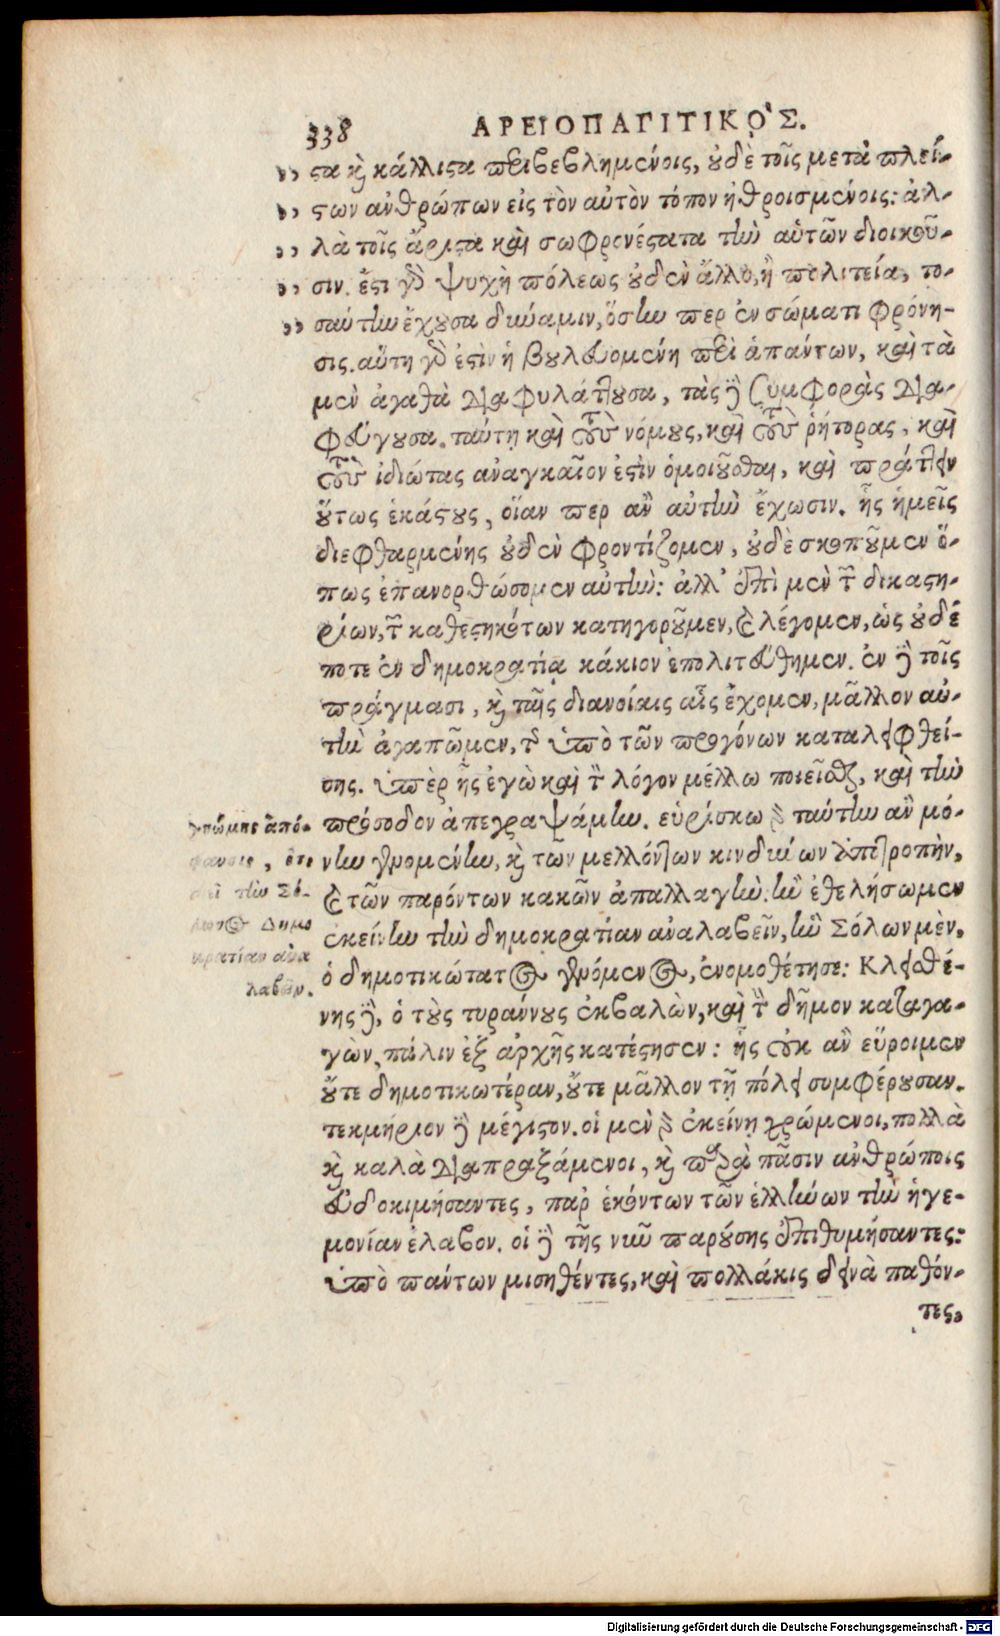 338 ΑΡΕΙΟΠΑΓΙΤΙΚΟ'Σ.
,, ϛα καὶ κάλλιϛα περιβεβλημένοις, οὐδὲ τοῖς μετὰ πλεί-
,, ϛων ἀνθρώπων εἰς τὸν αὐτὸν τόπον ἠθροισμένοις: ἀλ-
,, λὰ τοῖς ἄριϛα καὶ σωφρονέϛατα τὴν αὑτῶν διοικοῦ-
,, σιν. ἔϛι γὰρ ψυχὴ πόλεως οὐδὲν ἄλλο, ἢ πολιτεία, το-
,, σαύτην ἔχουσα δύναμιν, ὅσην περ ἐν σώματι φρόνη-
σις. αὕτη γάρ ἐϛὶν ἡ βουλευομένη περὶ ἁπάντων, καὶ τὰ
μὲν ἀγαθὰ διαφυλάττουσα, τὰς δὲ συμφορὰς δια-
φεύγουσα. ταύτῃ καὶ τοὺς νόμους, καὶ τοὺς ῥήτορας, καὶ
τοὺς ἰδιώτας ἀναγκαῖον ἐϛὶν ὁμοιοῦσθαι, καὶ πράττειν
οὕτως ἑκάϛους, οἵαν περ ἂν αὐτὴν ἔχωσιν. ἧς ἡμεῖς
διεφθαρμένης οὐδὲν φροντίζομεν, οὐδὲ σκοποῦμεν ὅ-
πως ἐπανορθώσομεν αὐτήν: ἀλλ' ἐπὶ μὲν τῶν δικαϛη-
ρίων, τῶν καθεϛηκότων κατηγοροῦμεν, καὶ λέγομεν, ὡς οὐδέ
ποτε ἐν δημοκρατίᾳ κάκιον ἐπολιτεύθημεν. ἐν δὲ τοῖς
πράγμασι, καὶ ταῖς διανοίαις αἷς ἔχομεν, μᾶλλον αὐ-
τὴν ἀγαπῶμεν, τῆς ὑπὸ τῶν προγόνων καταλειφθεί-
σης. ὑπὲρ ἧς ἐγὼ καὶ τὸν λόγον μέλλω ποιεῖσθαι, καὶ τὴν
πρόσοδον ἀπεγραψάμην. εὑρίσκω γὰρ ταύτην ἂν μό-
νην γενομένην, καὶ τῶν μελλόντων κινδύνων ἀποτροπὴν,
καὶ τῶν παρόντων κακῶν ἀπαλλαγὴν: ἢν ἐθελήσωμεν
ἐκείνην τὴν δημοκρατίαν ἀναλαβεῖν, ἣν Σόλων μὲν,
ὁ δημοτικώτατος γενόμενος, ἐνομοθέτησε: Κλεισθέ-
νης δὲ, ὁ τοὺς τυράννους ἐκβαλὼν, καὶ τὸν δῆμον καταγα-
γὼν, πάλιν ἐξ ἀρχῆς κατέϛησεν: ἧς οὐκ ἂν εὕροιμεν
οὔτε δημοτικωτέραν, οὔτε μᾶλλον τῇ πόλει συμφέρουσαν.
τεκμήριον δὲ μέγιϛον. οἱ μὲν γὰρ ἐκείνῃ χρώμενοι, πολλὰ
καὶ καλὰ διαπραξάμενοι, καὶ παρὰ πᾶσιν ἀνθρώποις
εὐδοκιμήσαντες, παρ' ἑκόντων τῶν ἑλλήνων τὴν ἡγε-
μονίαν ἔλαβον. οἱ δὲ τῆς νῦν παρούσης ἐπιθυμήσαντες:
ὑπὸ πάντων μισηθέντες, καὶ πολλάκις δεινὰ παθόν-
τες,
γνώμης ἀπό-
φανσις, ὅτι
δεῖ τὴν Σό-
λωνος Δημο
κρατίαν ἀνα
λαβεῖν.
Digitalisierung gefördert durch die Deutsche Forschungsgemeinschaft - DFG